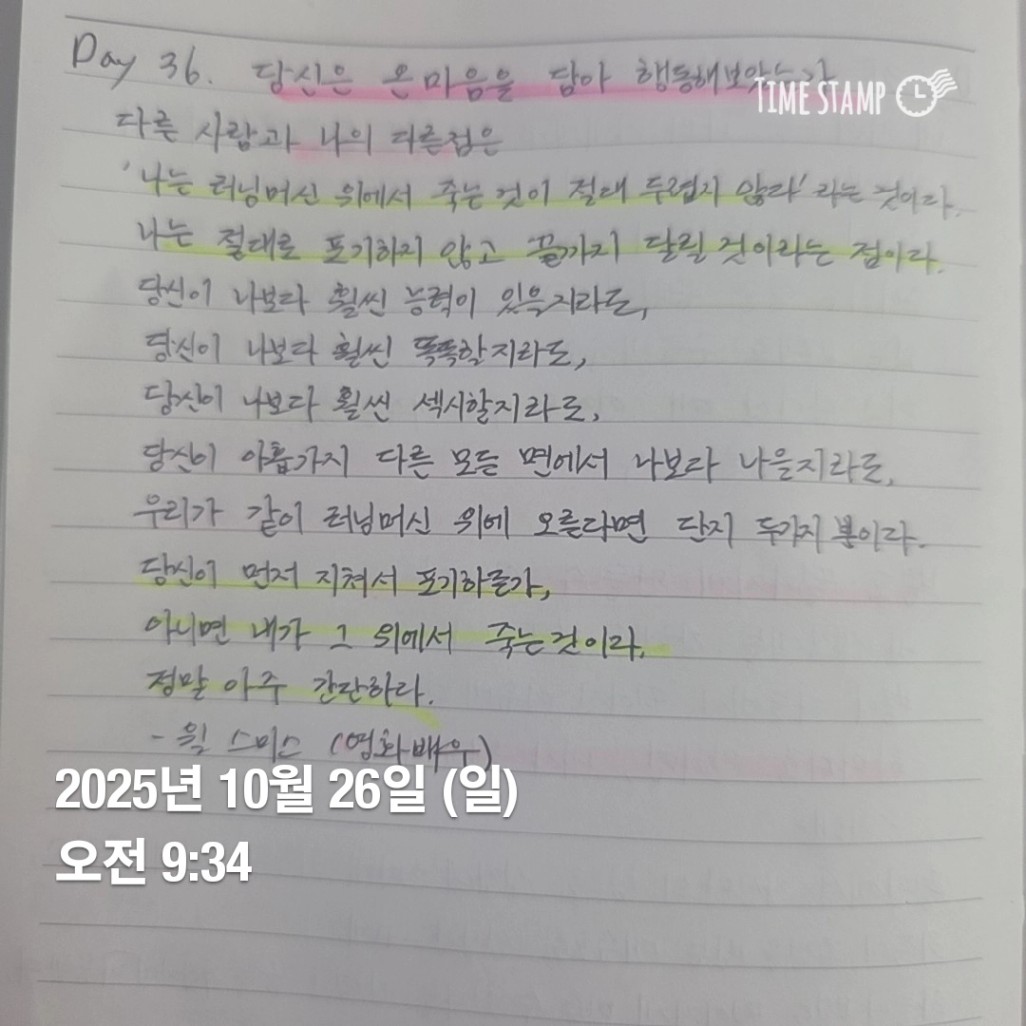 Day 36. 당신은 온 마음을 담아 행동해보았는가
TIME STAMP
다른 사람과 나의 다른점은
'나는 러닝머신 위에서 죽는 것이 절대 두렵지 않다' 라는 것이다.
나는 절대로 포기하지 않고 끝까지 달릴 것이라는 점이다.
당신이 나보다 훨씬 능력이 있을지라도,
당신이 나보다 훨씬 똑똑할지라도,
당신이 나보다 훨씬 섹시할지라도,
당신이 아홉가지 다른 모든 면에서 나보다 나을지라도,
우리가 같이 러닝머신 위에 오른다면 단지 두가지 뿐이다.
당신이 먼저 지쳐서 포기하든가,
아니면 내가 그 위에서 죽는 것이다.
정말 아주 간단하다.
- 윌 스미스 (영화배우)
2025년 10월 26일 (일)
오전 9:34